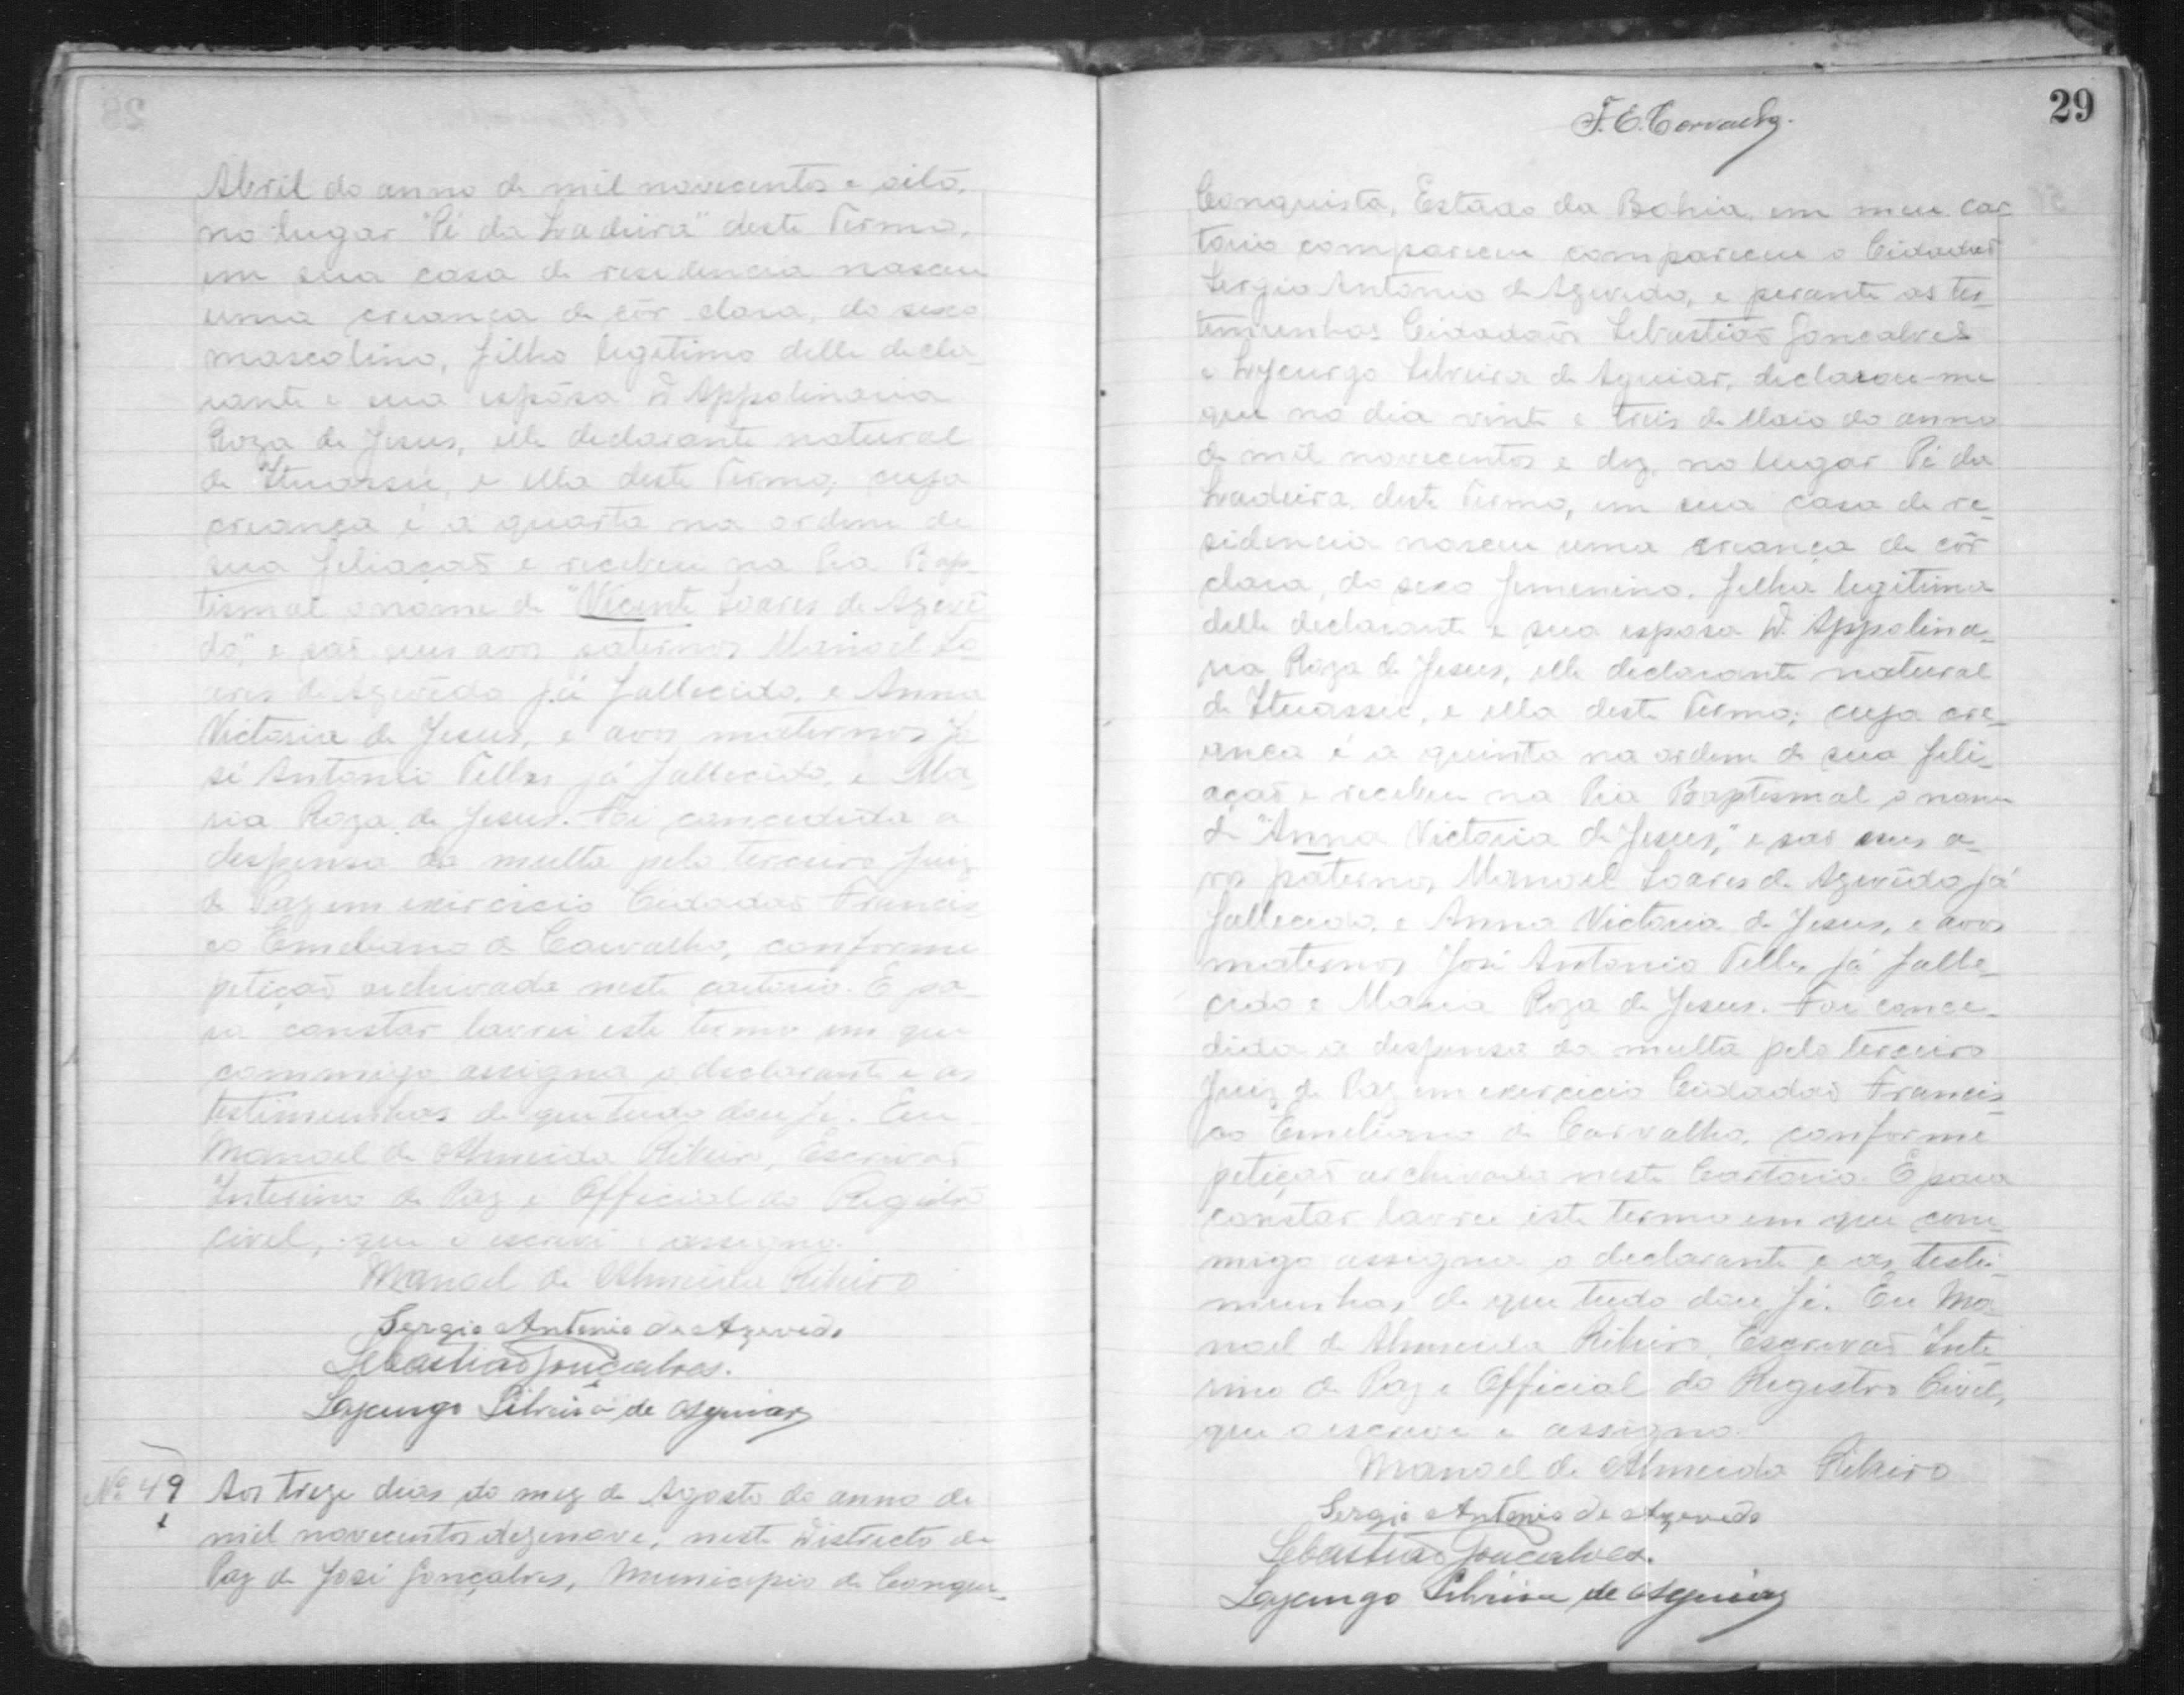 Abril do anno de mil novecentos e oito,
no lugar "Pé da Ladeira" deste Termo,
em sua casa de residencia nasceu
uma creança de côr clara, do sexo
mascolino, filho legitimo delle decla-
rante e sua espôsa D. Appolinaria
Roza de Jesus, elle declarante natural
de Ituassú, e ella deste Termo, cuja
creança é a quarta na ordem de
sua filiação e recebeu na Pia Bap-
tismal o nome de "Vicente Soares de Azevê-
do," e são seus avos paternos Manoel So-
ares de Azevêdo já fallecido, e Anna
Victoria de Jesus, e avos maternos Jo-
sé Antonio Telles já fallecido, e Ma-
ria Roza de Jesus. Foi concedida a
despensa da multa pelo terceiro Juiz
de Paz em exircicio Cidadão Francis-
co Emeliano de Carvalho, conforme
petição archivada neste cartorio. E pa-
ra constar lavrei este termo em que
commigo assigna o declarante e as
testimunhas de que tudo dou fé. Eu
Manoel de Almeida Ribeiro, Escrivão
Interino de Paz e Official do Registro
civel, que o escrevi e assigno.
Manoel de Almeida Ribeiro
Sergio Antonio de Azevedo
Sebastião Gonçalves.
Lycurgo Silveira de Aguiar
Nº 49
Aos treze dias do mez de Agosto do anno de
mil novecentos dezenove, neste Districto de
Paz de José Gonçalves, Municipio de Conqui-
29
F. E. Carvalho.
Conquista, Estado da Bahia, em meu car-
torio compareceu compareceu o Cidadão
Sergio Antonio de Azevedo, e perante as tes-
temunhas Cidadãos Sebastião Gonçalves
e Lycurgo Silveira de Aguiar, declarou-me
que no dia vinte e treis de Maio do anno
de mil novecentos e dez, no lugar Pé da
Ladeira deste Termo, em sua casa de re-
sidencia nasceu uma creança de côr
clara, do sexo femenino, filha legitima
delle declarante e sua esposa D. Appolina-
ria Roza de Jesus, elle declarante natural
de Ituassú, e ella deste Termo; cuja cre-
ança é a quinta na ordem de sua fili-
ação e recebeu na Pia Baptismal o nome
de "Anna Victoria de Jesus," e são seus a-
vos paternos Manoel Soares de Azevêdo já
fallecido, e Anna Victoria de Jesus, e avos
maternos José Antonio Telles já falle-
cido e Maria Roza de Jesus. Foi conce-
dida a despensa da multa pelo terceiro
Juiz de Paz em exercicio Cidadão Francis-
co Emeliano de Carvalho, conforme
petição archivada neste Cartorio. E para
constar lavrei este termo em que com-
migo assigna o declarante e as teste-
munhas de que tudo dou fé. Eu Ma-
noel de Almeida Ribeiro, Escrivão Inte-
rino de Paz e Official do Registro Civel,
que o escrevi e assigno.
Manoel de Almeida Ribeiro
Sergio Antonio de Azevedo
Sebastião Gonçalves.
Lycurgo Silveira de Aguiar